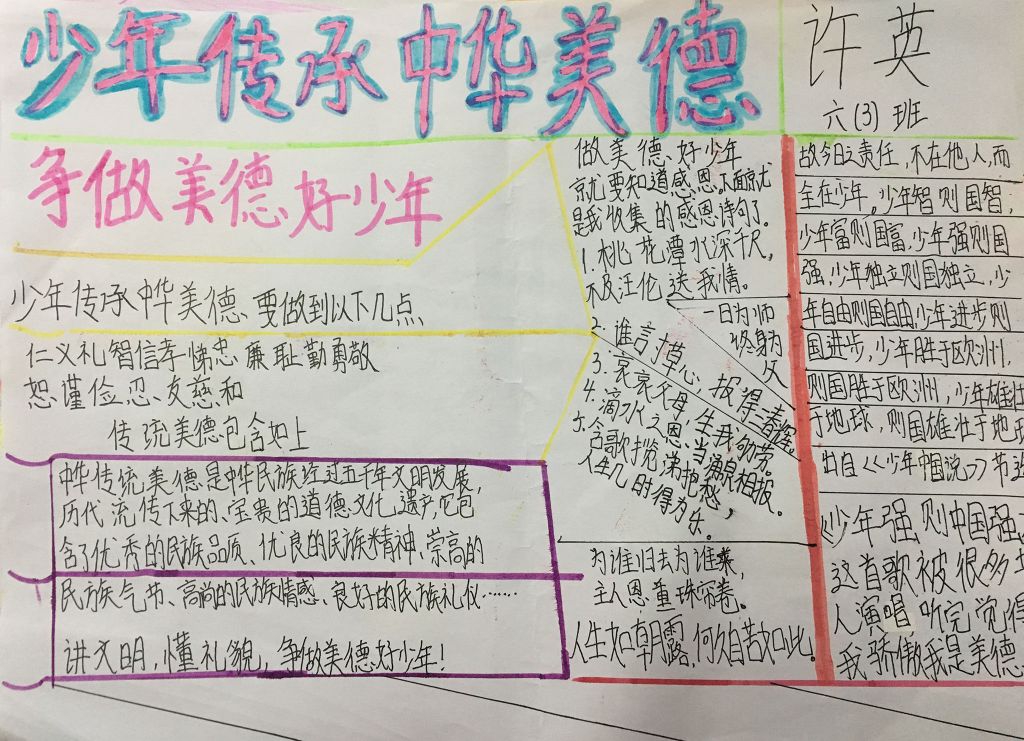 少年传承中华美德
许英
六(3)班
争做美德好少年
少年传承中华美德、要做到以下几点
仁义礼智信孝悌忠廉耻勤勇敬
恕谨俭忍友慈和
传统美德包含如上
中华传统美德是中华民族经过五千年文明发展，
历代流传下来的、宝贵的道德文化遗产，它包
含了优秀的民族品质、优良的民族精神、崇高的
民族气节、高尚的民族情感、良好的民族礼仪……
讲文明，懂礼貌，争做美德好少年！
做美德好少年
就要知道感恩，下面就
是我收集的感恩诗句了。
1.桃花潭水深千尺，
不及汪伦送我情。
一日为师
终身为
父
2.谁言寸草心，报得三春辉。
3.哀哀父母，生我劬劳。
4.滴水之恩，当涌泉相报。
5.含歌揽涕抱愁，
人生几时得为乐。
为谁归去为谁来，
主人恩重珠帘卷。
人生如朝露，何久自苦如此。
故今日之责任，不在他人，而
全在少年。少年智则国智；
少年富则国富，少年强则国
强，少年独立则国独立，少
年自由则国自由，少年进步则
国进步，少年胜于欧洲，
则国胜于欧洲，少年雄壮
于地球，则国雄壮于地球
出自《《少年中国说》》节选
《少年强则中国强
这首歌被很多
人演唱，听完觉得
我骄傲我是美德